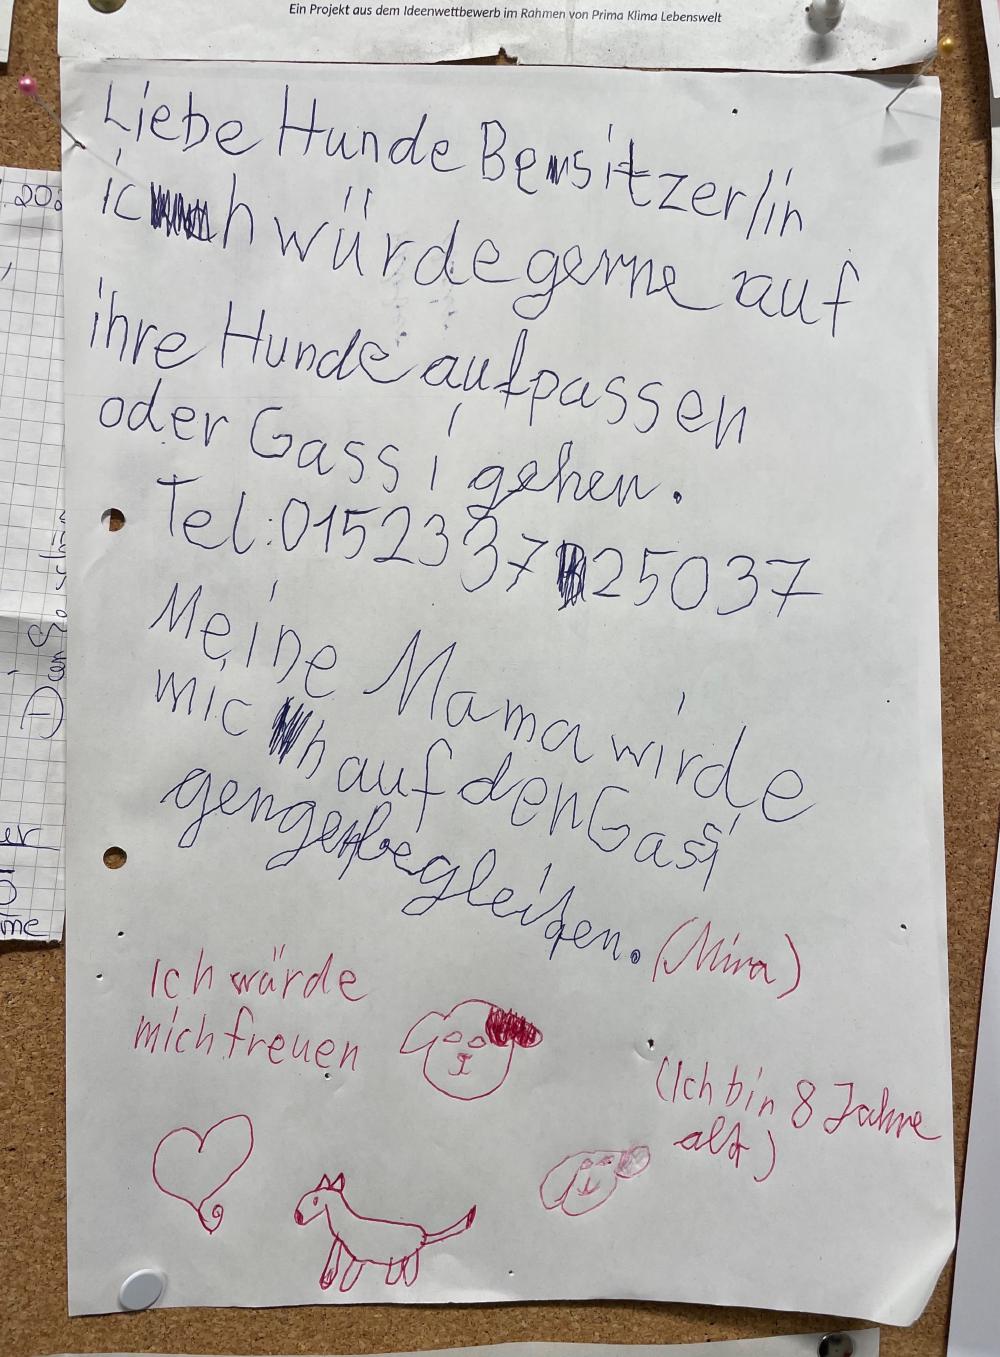 Ein Projekt aus dem Ideenwettbewerb im Rahmen von Prima Klima Lebenswelt
Liebe Hunde Besitzer/in
ich würde gerne auf
ihre Hunde aufpassen
oder Gassi gehen.
Tel:01523 3725037
Meine Mama wirde
mich auf den Gasi
gengen begleiten.
(Mira)
Ich wärde
mich freuen
(Ich bin 8 Jahre
alt)
202
er
me